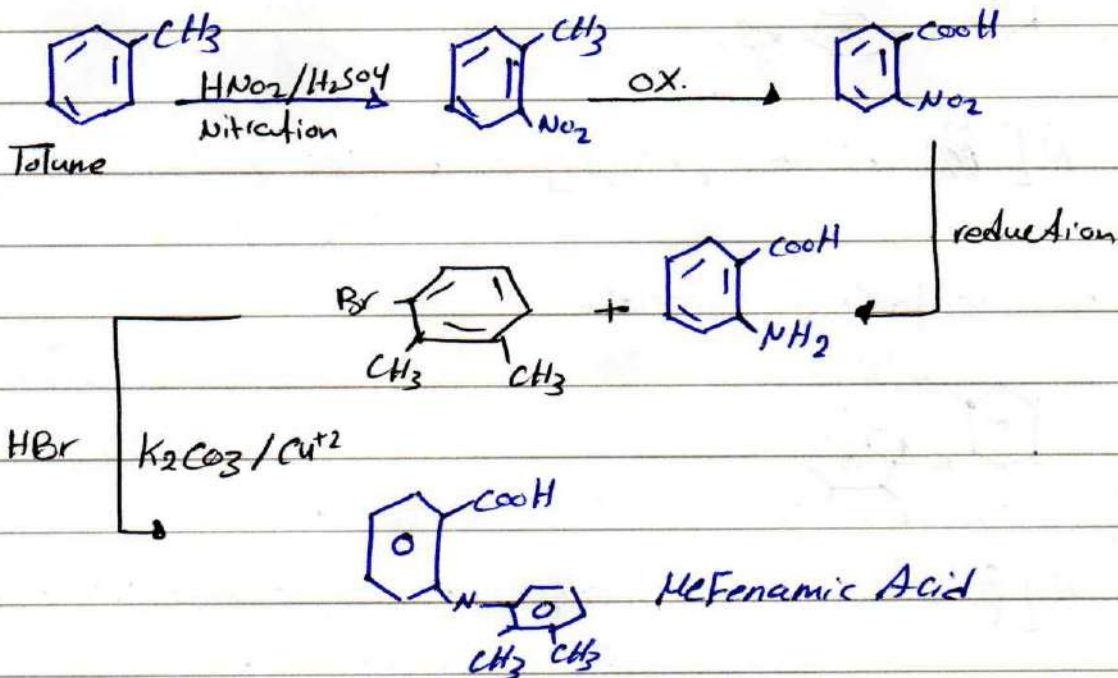 CH3
HNO2/H2SO4
Nitration
Tolune
CH3
NO2
OX.
COOH
NO2
reduction
COOH
NH2
+
Br
CH3
CH3
HBr
K2CO3/Cu+2
COOH
N
CH3
CH3
Mefenamic Acid